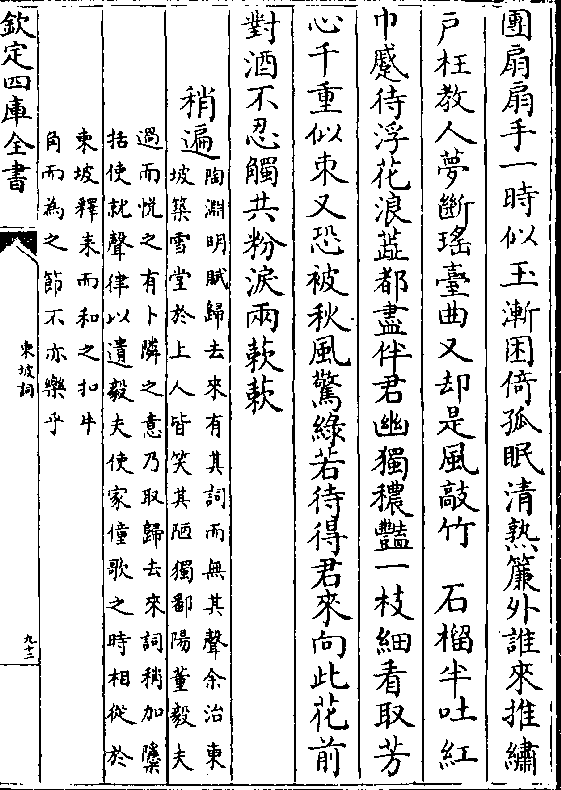 團扇扇手一時似玉漸困倚孤眠清熟簾外誰來推繡
戸枉教人夢斷瑤臺曲又却是風敲竹　石榴半吐紅
巾蹙待浮花浪蘂都盡伴君幽獨穠豔一枝細看取芳
心千重似束又恐被秋風驚綠若待得君來向此花前
對酒不忍觸共粉淚兩蔌蔌
稍遍
陶淵明賦歸去來有其詞而無其聲余治東
坡築雪堂於上人皆笑其陋獨鄱陽董毅夫
過而悅之有卜隣之意乃取歸去來詞稍加檃
括使就聲律以遺毅夫使家僮歌之時相從於
東坡釋耒而和之扣牛
角而為之節不亦樂乎
欽定四庫全書
東坡詞
九十二